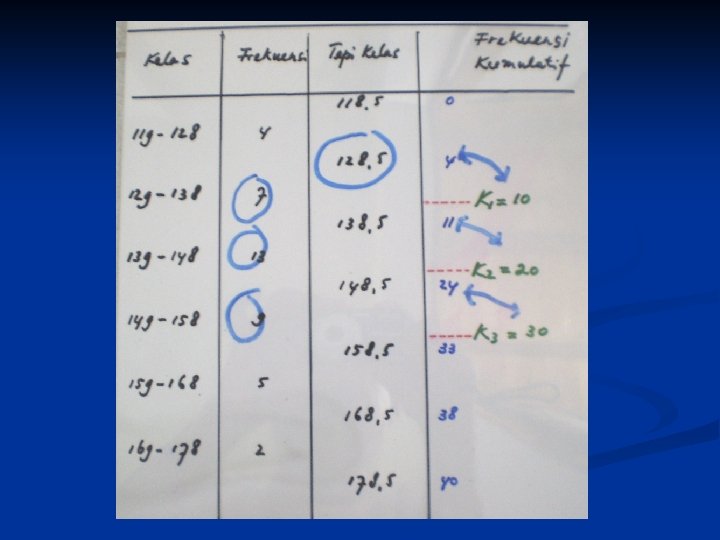 Kelas Frekuensi Tepi Kelas Frekuensi Kumulatif
118,5 0
119-128 4
128,5 4
K1 = 10
129-138 7
138,5 11
139-148 13
K2 = 20
148,5 24
149-158 9
K3 = 30
158,5 33
159-168 5
168,5 38
169-178 2
178,5 40